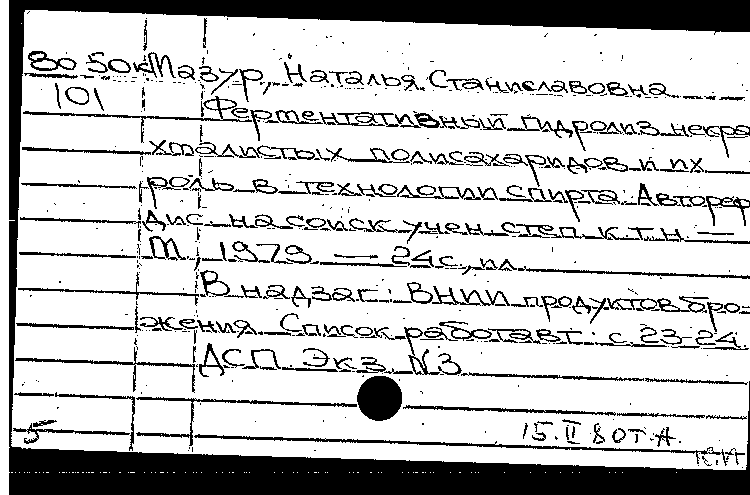 80 50к Мазур, Наталья Станиславовна
101 Ферментативный гидролиз некра
хмалистых полисахаридов и их
роль в технологии спирта: Автореф
дис. на соиск учен. степ. к.т.н. —
М, 1979 — 24с., ил.
В надзаг: ВНИИ продуктов бро-
жения. Список работ авт: с. 23-24.
ДСП. Экз. N3
15.II 80 Т.А.
5